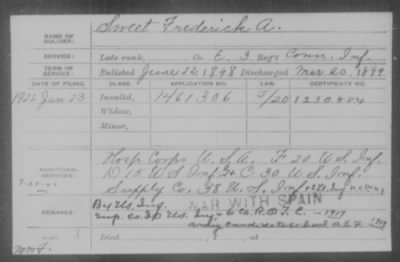 Sweet Frederick A.
NAME OF SOLDIER:
SERVICE: Late rank, Co. E, 3, Reg't Conn. Inf.
TERM OF SERVICE: Enlisted June 22, 1898 Discharged Mar. 20, 1899
DATE OF FILING. CLASS. APPLICATION NO. LAW. CERTIFICATE NO.
1922 Jan 23 Invalid, 1461306 5/20 1230484
Widow,
Minor,
Hosp Corps U.S.A. F 20 U.S. Inf.
ADDITIONAL SERVICES: D 15 U.S. Inf. Co. C, 30 U.S. Inf.
Supply Co. 38 U.S. Inf.
WAR WITH SPAIN
REMARKS: Sup. Co. 30 U.S. Inf. - 6 Co. R.O.T.C. - 1919
Died